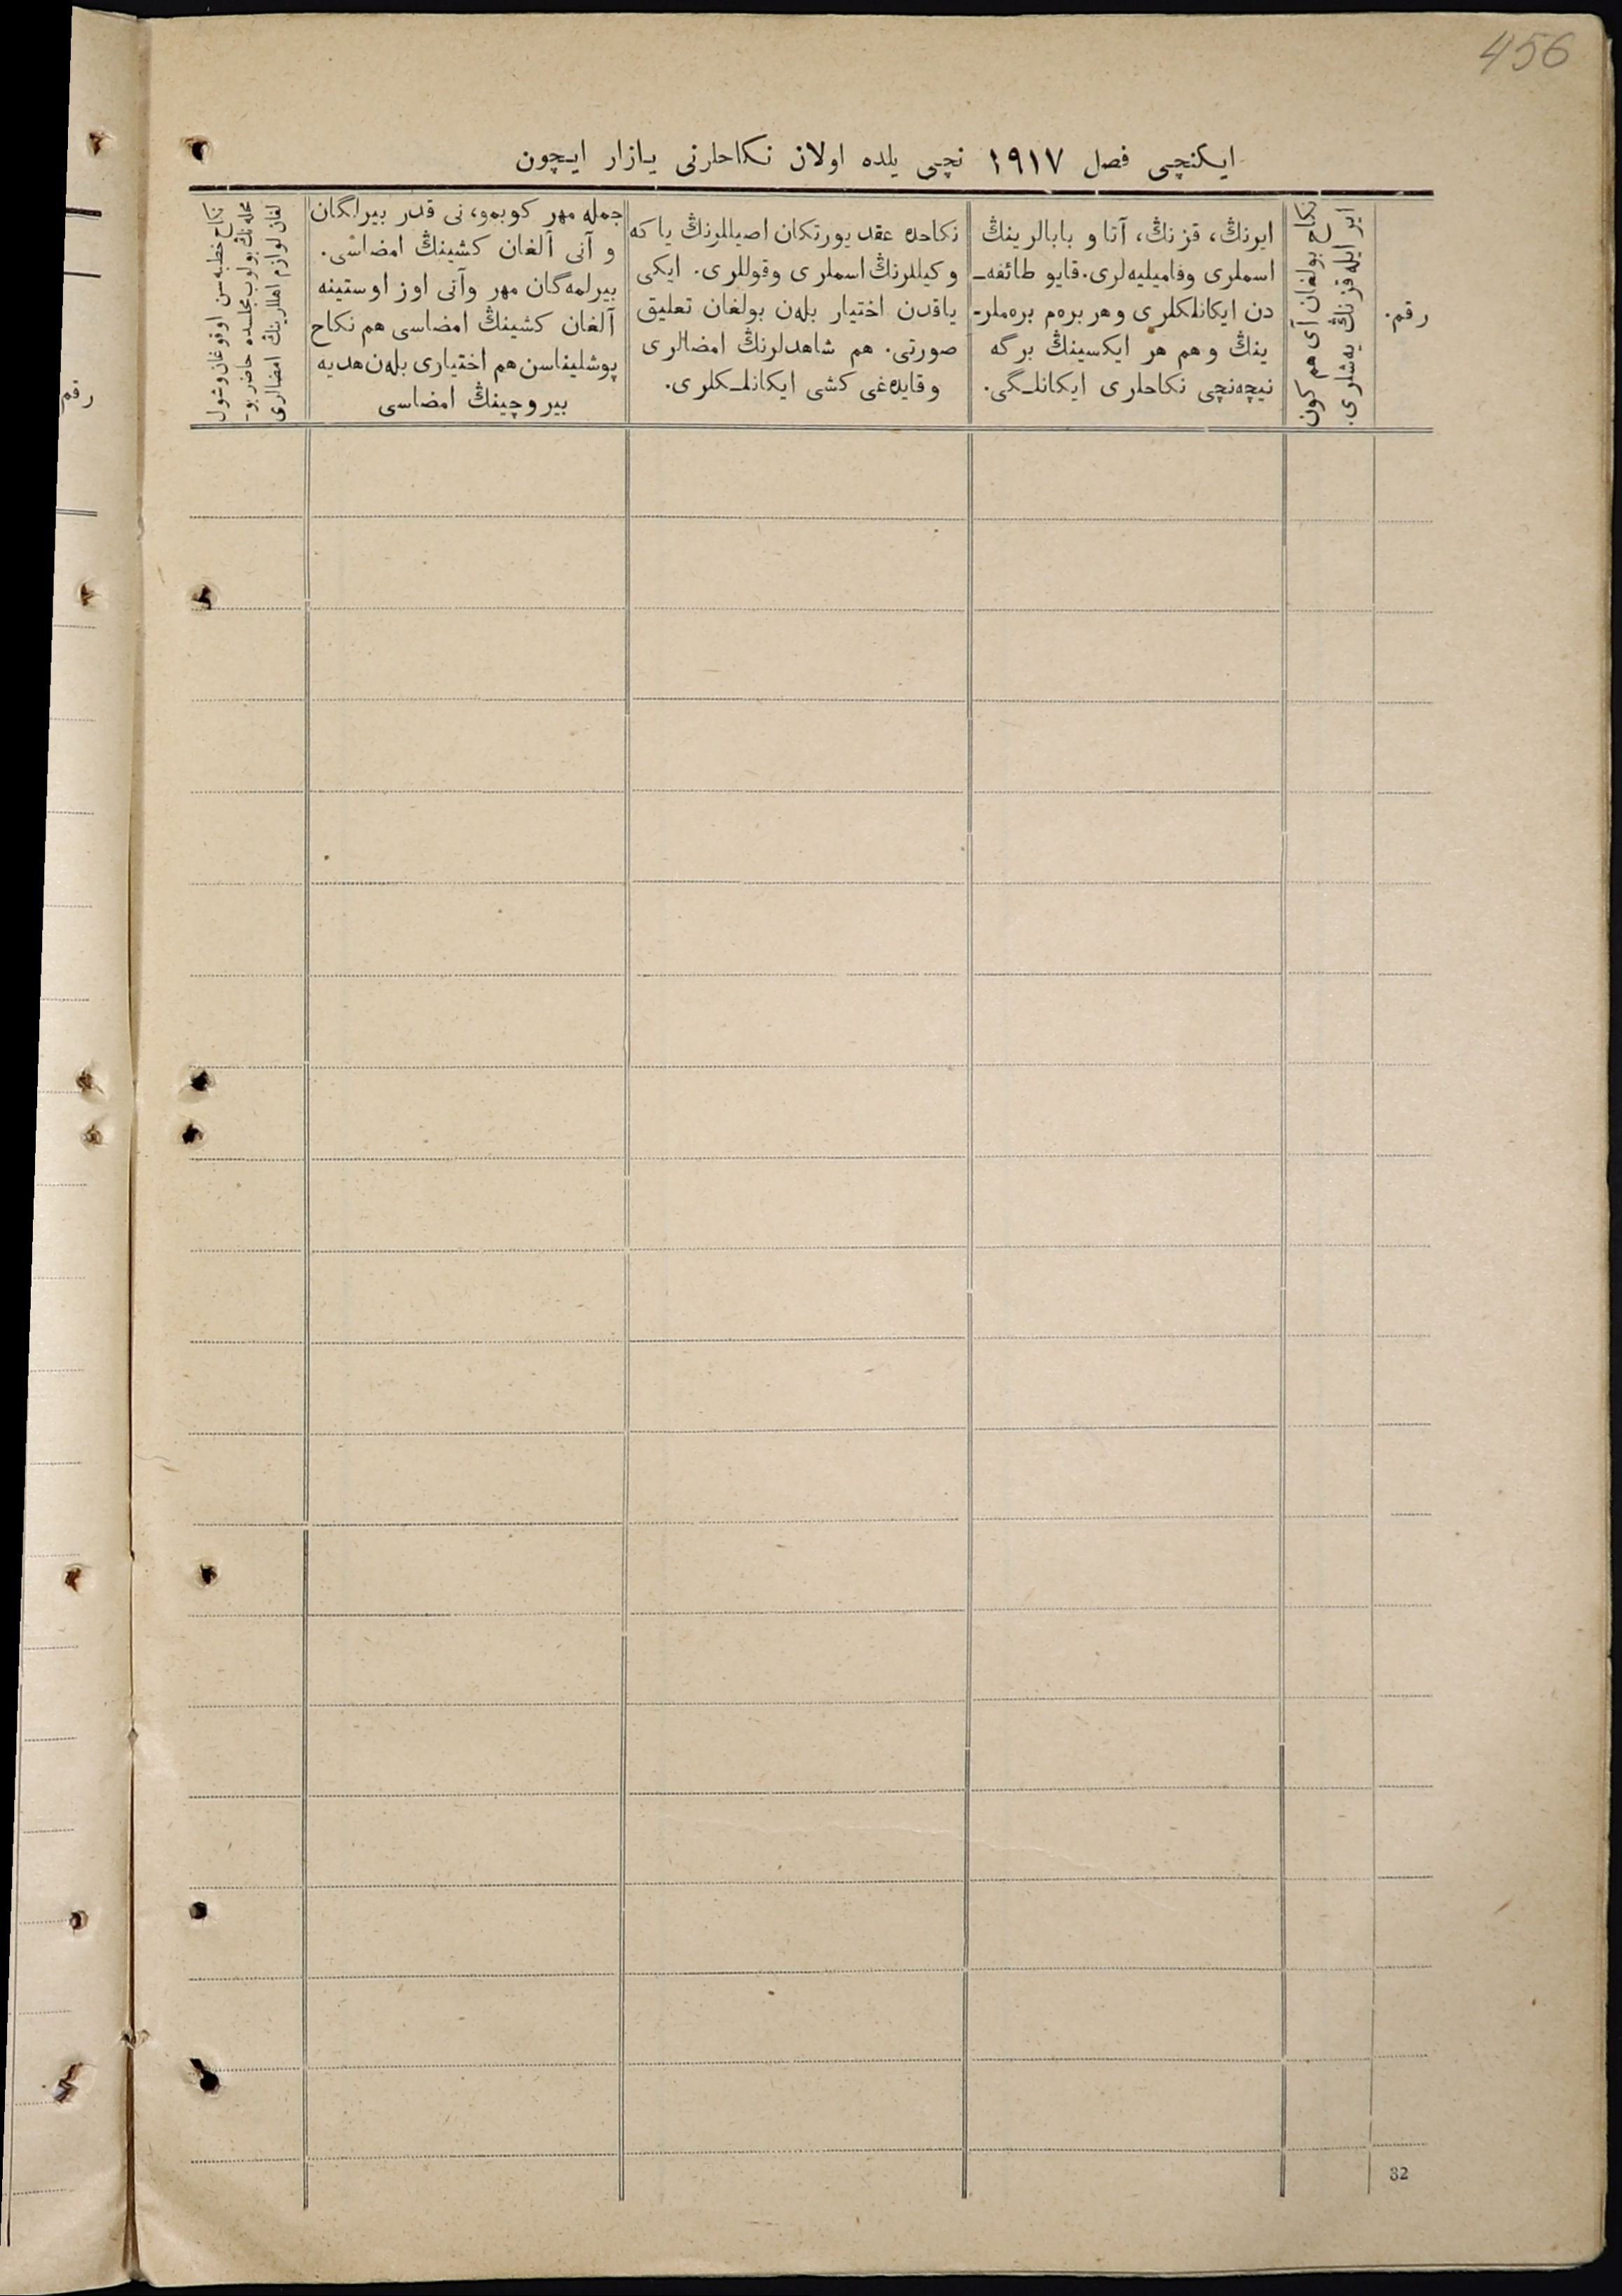 456
ايكنچی فصل ١٩١٧ نچی يلده اولان نكاحلرنی يازار ايچون
رقم.
نكاح بولغان آی هم كون
اير ايله قز نڭ يه‌شلری.
ايرنڭ، قز نڭ، آتا و بابالرينڭ
اسملری وفاميليه‌لری. قايو طائفه‌ـ
دن ايكانلكلری وهر بره‌م بره‌ملرـ
ينڭ وهم هر ايكسينڭ برگه
نيچه‌نچی نكاحلری ايكانلـگی.
نكاحده عقد يورتكان اصيللرنڭ ياكه
وكيللرنڭ اسملری وقوللری. ايكی
ياقدن اختيار بله‌ن بولغان تعليق
صورتی. هم شاهدلرنڭ امضالری
وقايده‌غی كشی ايكانلـكلری.
جمله مهر كوبمو، نی قدر بيرلگان
و آنی آلغان كشينڭ امضاسی.
بيرلمه‌گان مهر وآنی اوز اوستينه
آلغان كشينڭ امضاسی هم نكاح
پوشليناسن هم اختياری بله‌ن هديه
بيروچينڭ امضاسی
نكاح خطبه‌سن اوقوغان وشول
محله‌نڭ بولوب مجلسده حاضر بوـ
لغان لوازم اهللرينڭ امضالری
رقم
32